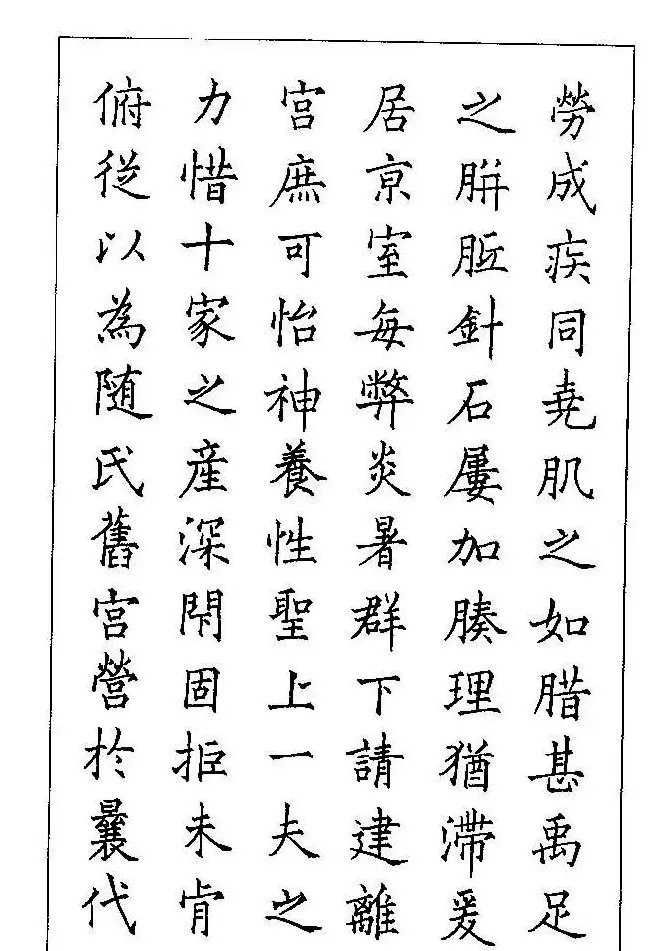 勞成疾同堯肌之如腊甚禹足
之腁胝針石屢加腠理猶滯爰
居京室每弊炎暑群下請建離
宮庶可怡神養性聖上愛一夫之
力惜十家之產深閇固拒未肯
俯從以為随氏舊宮營於曩代